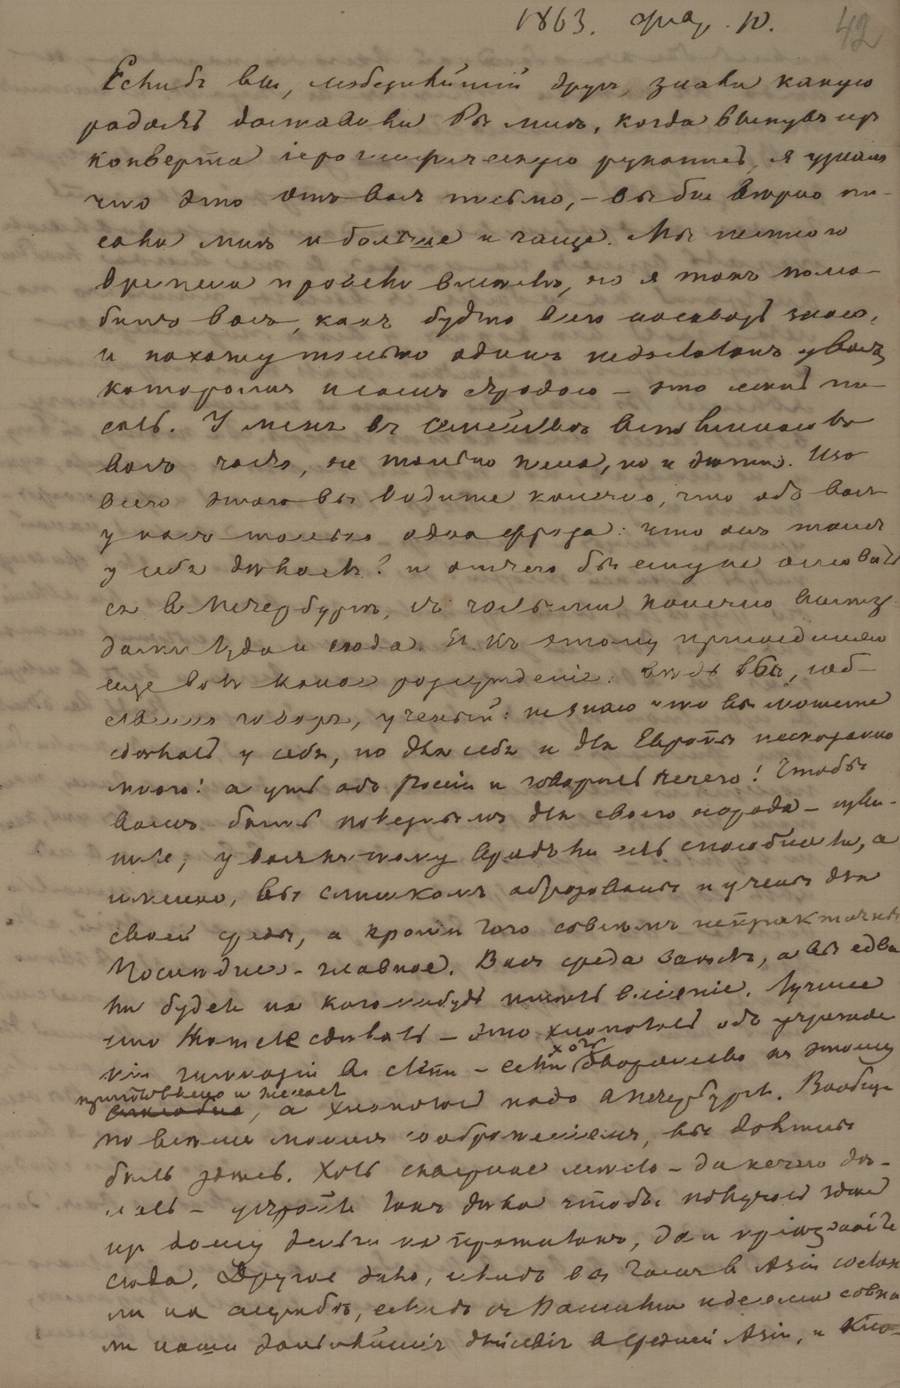 1863. фев. 10. 42
Если б вы, любезнейший друг, знали какую
радость доставили Вы мне, когда вынув из
конверта іероглифическую рукопись, я узналъ
что это отъ васъ письмо, – вы бы верно пи-
сали мне и больше и чаще. Мы немного
времени провели вместе, но я такъ полю-
билъ васъ, какъ будто всего насквозь знаю,
и нахожу только одинъ недостатокъ у васъ,
которымъ и самъ страдаю – это лень пи-
сать. У меня въ семействе вспоминаютъ
васъ часто, не только жена, но и дети. Изо
всего этого вы видите конечно, что объ васъ
у насъ только одна фраза: что онъ тамъ
у себя делаетъ? и отчего бы ему не оставать
ся в Петербурге, съ частыми конечно выез
дами туда и сюда. И къ этому присоединяю
еще вотъ какое разсужденіе: ведь вы, соб-
ственно говоря, ученый: не знаю что вы можете
сделать у себя, но для себя и для Европы несказанно
много! а ужъ объ Россіи и говорить нечего! Чтобы
вамъ быть полезнымъ для своего народа – изви-
ните, у васъ къ тому врядъ ли есть способности, а
именно, вы слишкомъ образованы и учены для
своей среды, а кроме того совсемъ непрактичны.
Последнее – главное. Васъ среда заестъ, а вы едва
ли будете на кого нибудь иметь вліяніе. Лучшее
что можете сделать – это хлопотать объ учрежде
ніи гимназіи въ степи – если хоть дворянство къ этому
приготовлено и желаетъ, а хлопотать надо в Петербурге. Вообще
по всемъ моимъ соображеніямъ, вы должны
быть здесь. Хоть скверное место – да нечего де-
лать – устройте такъ дела чтобы получать здесь
изъ дому деньги на прожитокъ, да и пріезжайте
сюда. Другое дело, еслибъ вы тамъ в Азіи состоя
ли на службе, еслибъ съ вашими идеями совпа
ли наши дальнейшіе действія в Средней Азіи, и